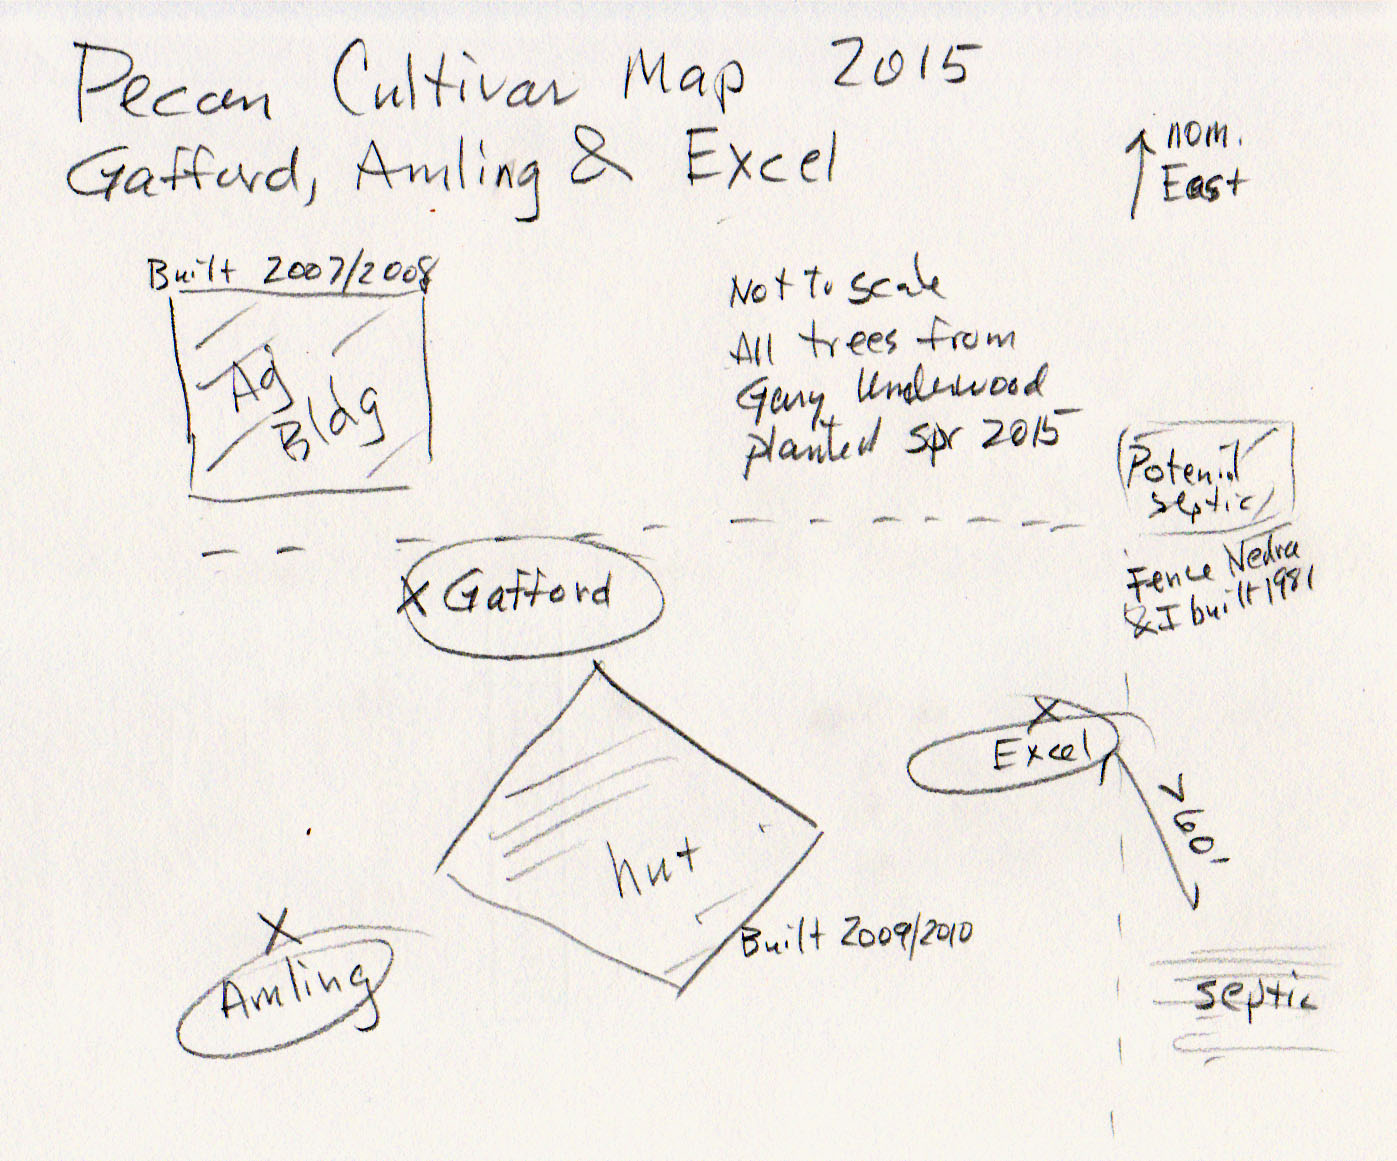 Pecan Cultivar Map 2015
Gafford, Amling & Excel
nom.
East
Built 2007/2008
Ag
Bldg
Not to scale
All trees from
Gary Underwood
planted spr 2015
Potenial
septic
Fence Nedra
& I built 1981
X Gafford
X
Excel
60'
hut
Built 2009/2010
X
Amling
septic